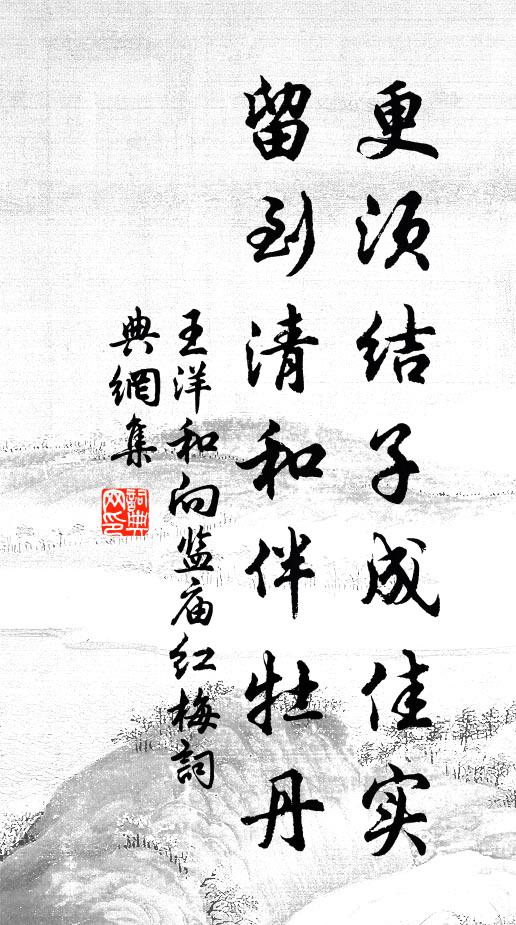 更须结子成佳实
留到清和伴牡丹
王洋和向监庙红梅詞
典網集
詞典網印